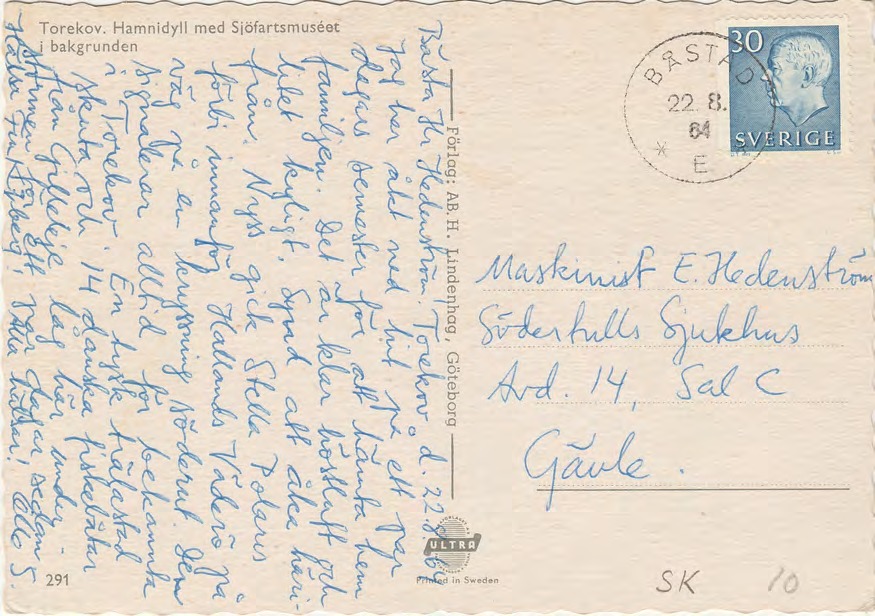 Torekov. Hamnidyll med Sjöfartsmuséet
i bakgrunden
Bästa Hr Hedenström. Torekov d. 22.8.64
Jag har åkt ned hit på ett par
dagars semester för att hämta hem
familjen. Det är klar höstluft och
litet kyligt. Synd att åka häri-
från. Nyss gick Stella Polaris
förbi innanför Hallands Väderö på
väg på en kryssning söderut. Den
signalerar alltid för bekannta
i Torekov. En tysk trälastad
skuta och 14 danska fiskebåtar
från Gilleleje låg här under
stormen för ett par dagar sedan.
Hälsa Alla hälsar! Olle S.
Förlag: AB. H. Lindenhag, Göteborg
ULTRA
Printed in Sweden
291
BÅSTAD
22. 8.
64
* E
30
SVERIGE
Maskinist E. Hedenström
Södertulls Sjukhus
Avd. 14, Sal C
Gävle.
SK 10